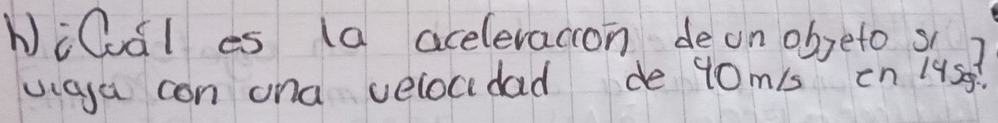 h) ¿Cuál es la aceleración de un objeto si
viaja con una velocidad de 40m/s en 14sg?